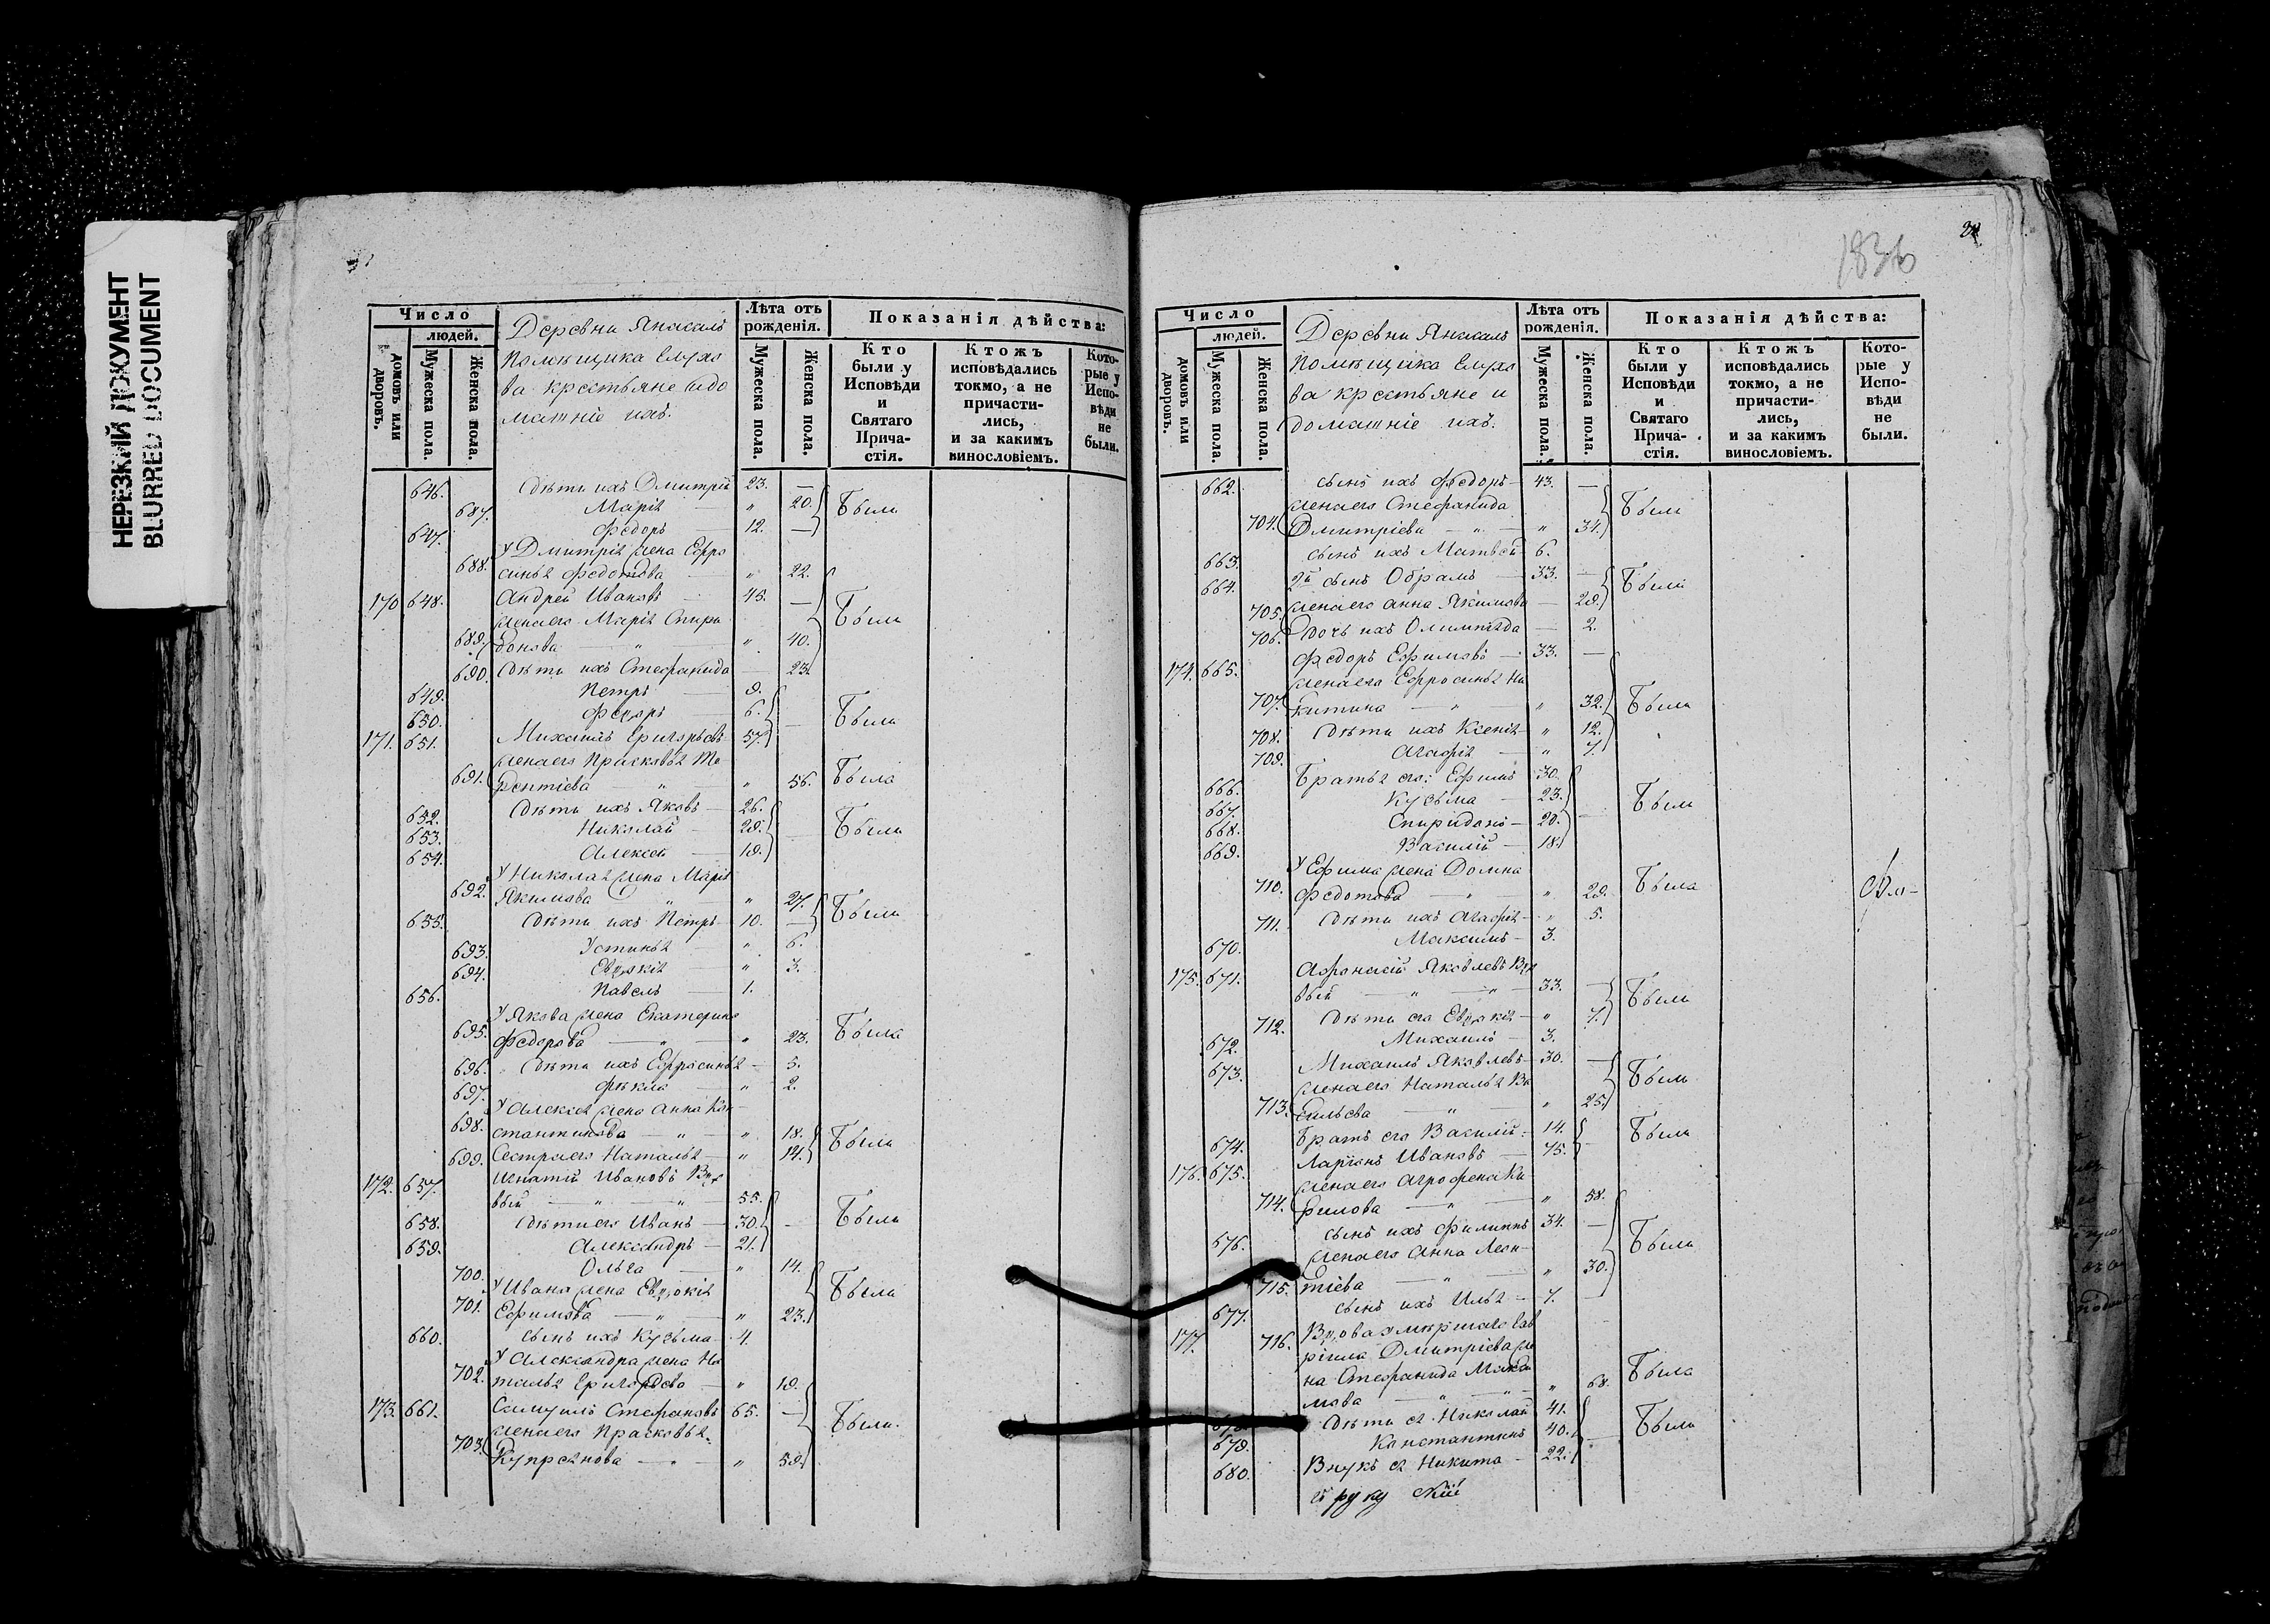 НЕРЕЗКИЙ ДОКУМЕНТ
BLURRED DOCUMENT
Число
людей.
домовъ или дворовъ.
Мужеска пола.
Женска пола.
Деревни
помещика
ва крестьяне и до
машніе ихъ.
Лѣта отъ рожденія.
Мужеска пола.
Женска пола.
Показанія дѣйства:
Кто были у Исповѣди и Святаго Прича-стія.
Ктожъ исповѣдались токмо, а не причасти-лись, и за какимъ винословіемъ.
Кото-рые у Испо-вѣди не были.
646. Дѣти ихъ Дмитрій 23. —
687. Марія — „ 20. Были
647. Федоръ 12. —
У Дмитрія жена Ефро
688. синья Федотова — „ 22.
170 648. Андрей Ивановъ — 45. — Были
жена его Марія Спири
689. донова — „ — „ 40.
690. Дѣти ихъ Стефанида — 23.
649. Петръ — 9.
650. Федоръ — 6. — Были
171. 651. Михаилъ Григорьевъ 57.
жена его Прасковья Те
691. рентіева „ „ 56. Была
652. Дѣти ихъ Яковъ — 26.
653. Николай — 29. — Были
654. Алексей — 19.
У Николая жена Марія
692. Якимова „ „ 27. Были
655. Дѣти ихъ Петръ — 10. —
693. Устинья — „ 6.
694. Евдокія — „ 3.
656. Павелъ — 1.
У Якова жена Екатерина
695. Федорова — „ — „ 23. Была
696. Дѣти ихъ Ефросинья — 5.
697. Фекла — „ 2.
У Алексея жена Анна Кон
698. стантинова — „ — „ 18. Были
699. Сестра его Наталья — „ 14.
172. 657. Игнатій Ивановъ Вдо
вый — „ „ 55.
658. Дѣти его Иванъ — 30. — Были
659. Александръ — 21.
700. Ольга — „ 14.
У Ивана жена Евдокія Были
701. Ефимова — „ — „ 23.
660. Сынъ ихъ Кузьма — 4.
У Александра жена На
702. талья Григорьева — „ 19.
173. 661. Самуилъ Стефановъ 65. — Были.
жена его Прасковья
703. Купреянова — „ — „ 59.
1836
Число
людей.
домовъ или дворовъ.
Мужеска пола.
Женска пола.
Деревни
помещика
ва крестьяне и
домашніе ихъ.
Лѣта отъ рожденія.
Мужеска пола.
Женска пола.
Показанія дѣйства:
Кто были у Исповѣди и Святаго Прича-стія.
Ктожъ исповѣдались токмо, а не причасти-лись, и за какимъ винословіемъ.
Кото-рые у Испо-вѣди не были.
662. Сынъ ихъ Федоръ — 43. —
жена его Стефанида Были
704. Дмитріева — „ — „ 34.
663. Сынъ ихъ Матвей 6.
664. 2й сынъ Обрамъ — 33. — Были
705. жена его Анна Якимова — 29.
706. Дочь ихъ Олимпіяда — 2.
174. 665. Федоръ Ефимовъ — 33. —
жена его Ефросинья Ни
707. китина — „ — „ 32. Были
708. Дѣти ихъ Ксенія — „ 12.
709. Агафія — „ 7.
666. Братья его: Ефимъ 30.
667. Кузьма — 23. Были
668. Спиридонъ — 20. —
669. Василій — 18.
У Ефима жена Домна
710. Федотова — „ — „ 29. Была
711. Дѣти ихъ Агафія — „ 5.
670. Максимъ — 3.
175. 671. Афонасій Яковлевъ Вдо
вый — „ — „ — 33. — Были
712. Дѣти его Евдокія — „ 7.
672. Михаилъ — 3.
673. Михаилъ Яковлевъ — 30. — Были
жена его Наталья Ва
713. сильева — „ — „ 25.
674. Братъ его Василій — 14. Были
176. 675. Ларіонъ Ивановъ — 75. —
жена его Агрофена Ки
714. рилова — „ — „ 58.
676. Сынъ ихъ Филиппъ 34. — Были
жена его Анна Леон
715. тіева — „ — „ 30.
677. Сынъ ихъ Илья — 7. —
177. 716. Вдова умершаго Гав
ріила Дмитріева же
на Стефанида Макси Была
мова — „ — „ — „ 68.
Дѣти ея Николай 41.
679. Константинъ 40. — Были
680. Внукъ ея Никита — 22.